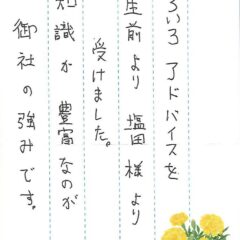 ろいろ アドバイスを
生前より 塩田様より
受けました。
知識が 豊富なのが
御社の強みです。